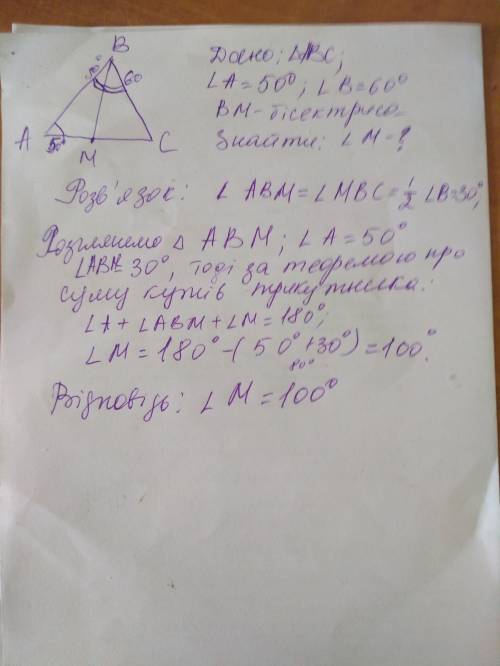 B
30° 60
A 50° M C
Дано: △ABC;
∠A=50°; ∠B=60°
BM-бісектриса
Знайти: ∠M-?
Розв'язок: ∠ABM=∠MBC=1/2∠B=30°;
Розглянемо △ ABM; ∠A=50°
30°, тоді за теоремою про
суму кутів трикутника:
∠A+∠ABM+∠M=180°;
∠M=180°-(50°+30°)=100°.
80°
Відповідь: ∠M=100°